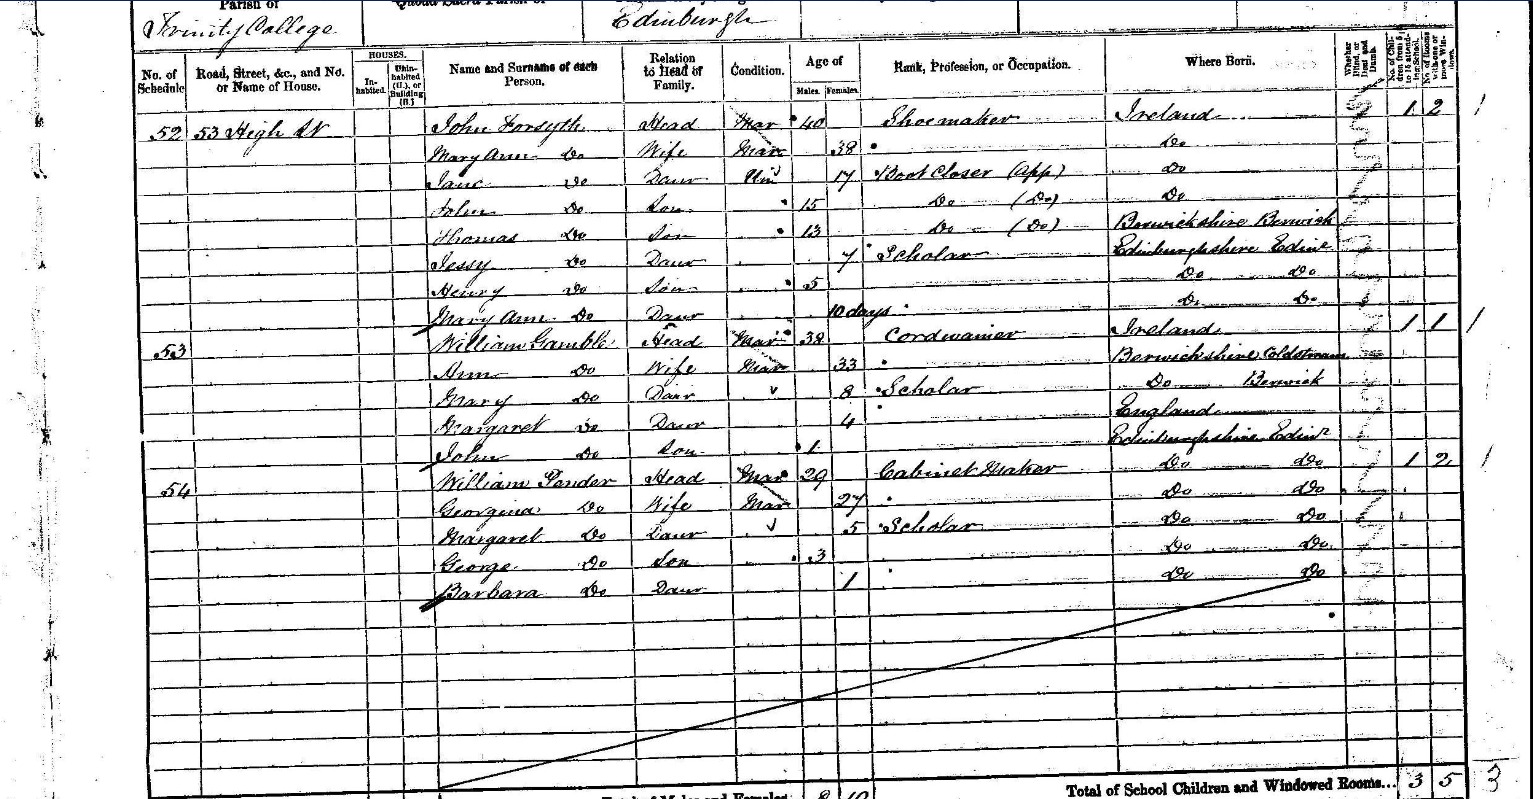 Parish of
Quoad Sacra Parish of
Trinity College
Edinburgh
HOUSES.
No. of Schedule
Road, Street, &c., and No. or Name of House.
In-habited.
Unin-habited (U.), or Building (B.)
Name and Surname of each Person.
Relation to Head of Family.
Condition.
Age of
Males. Females.
Rank, Profession, or Occupation.
Where Born.
Whether Blind, or Deaf and Dumb.
No. of Chil-dren from 5 to 15 attend-ing School.
No. of Rooms with one or more Win-dows.
52 53 High St John Forsyth Head Mar 40 Shoemaker Ireland 1 2 1
Mary Ann Do Wife Mar 38 Do
Jane Do Daur Un 17 Boot Closer (App) Do
John Do Son 15 Do (Do) Do
Thomas Do Son 13 Do (Do) Berwickshire Berwick
Jessy Do Daur 7 Scholar Edinburghshire Edinr
Henry Do Son 5 Do Do
Mary Ann Do Daur 10 days Do Do
53 William Gamble Head Mar 38 Cordwainer Ireland 1 1 1
Ann Do Wife Mar 33 Berwickshire Coldstream
Mary Do Daur 8 Scholar Do Berwick
Margaret Do Daur 4 England
John Do Son 1 Edinburghshire Edinr
54 William Pender Head Mar 29 Cabinet Maker Do Do 1 2 1
Georgina Do Wife Mar 27 Do Do
Margaret Do Daur 5 Scholar Do Do
George Do Son 3 Do Do
Barbara Do Daur 1 Do Do
Total of School Children and Windowed Rooms... 3 5 3